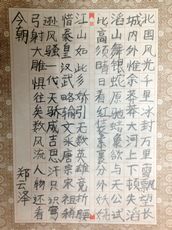 北国风光千里冰封万里雪飘望长
城内外惟余莽莽大河上下顿失滔
滔山舞银蛇原驰蜡象欲与天公试
比高须晴日看红装素裹分外妖娆
江山如此多娇引无数英雄竞折腰
惜秦皇汉武略输文采唐宗宋祖稍
逊风骚一代天骄成吉思汗只识弯
弓射大雕俱往矣数风流人物还看
今朝
郑云泽